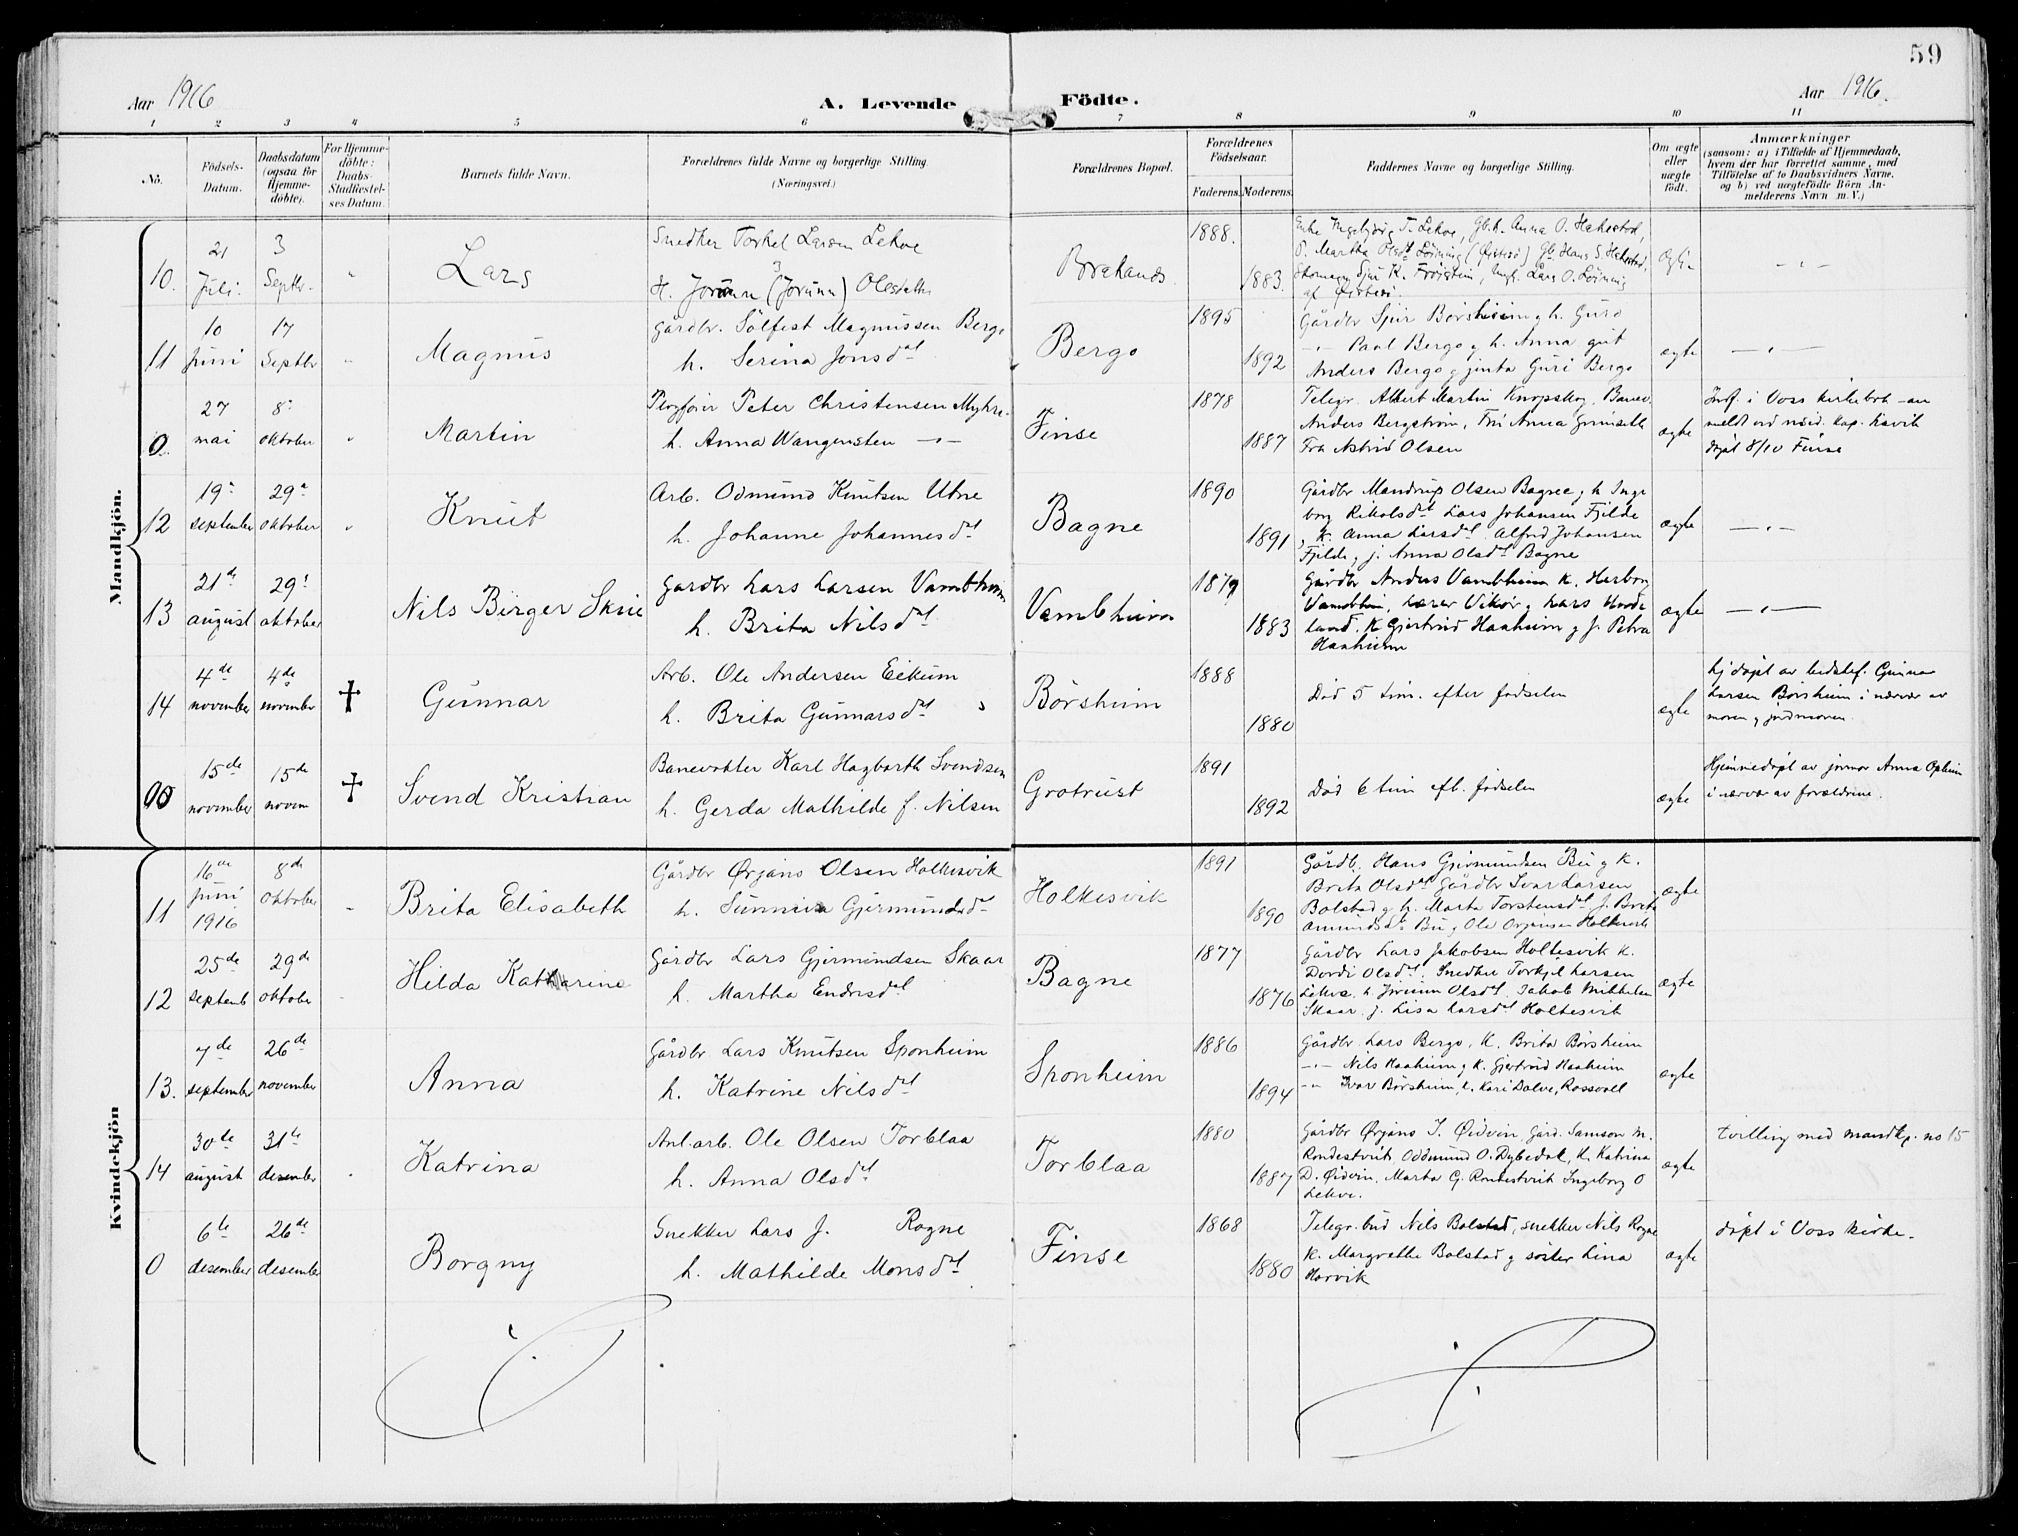 59
Aar 1916
A. Levende Födte.
Aar 1916.
1 2 3 4 5 6 7 8 9 10 11
No.
Födsels-
Datum.
Daabsdatum
(ogsaa for
Hjemme-
döbte).
For Hjemme-
döbte:
Daabs-
Stadfæstel-
ses Datum.
Barnets fulde Navn.
Forældrenes fulde Navne og borgerlige Stilling
(Næringsvei.)
Forældrenes Bopæl.
Forældrenes
Födselsaar.
Faderens. Moderens.
Faddernes Navne og borgerlige Stilling.
Om ægte
eller
uægte
födt.
Anmærkninger
(saasom: a) i Tilfælde af Hjemmedaab,
hvem der har forrettet samme, med
Tilföielse af to Daabsvidners Navne,
og b) ved uægtefödte Börn An-
melderens Navn m.V.)
Mandkjön.
10.
21
Juli.
3
Septbr.
Lars
Snedker Torkel Larsen Lekve
H. Jorunn (Jorunn) Olesdatter
1888.
1883.
Enke Ingebjörg T. Lekve, Gbk. Anna O. Hakestad,
Gb. Hans S. Hakestad,
Lars O.
11
10
Juni
17
Septbr
Magnus
Gårdbr. Sölfest Magnussen Bergo
h. Serina Jonsdtl
Bergo
1895
1892
Gårdbr Sjur Börsheim g h. Guro
Paul Bergo g h. Anna gut
Anders Bergo g jinta Guri Bergo
ægte
0.
27
mai
8'
oktober
Martin
Plogfører Peter Christensen Myhre
h. Anna Wangensten
Finse
1878
1887
Telegr. Albert Martin Knopskog, Banev.
Anders Bergström, Frk Anna Grimseth
Fru Astrid Olsen
ægte
Indf. i Voss kirkebok - an
meldt ved resid. kap. Kavik
døpt 8/10 Finse
12
19'
september
29'
oktober
Knut
Arb. Odmund Knutsen Utne
h. Johanne Johannesdtl
Bagne
1890
1891
Gårdbr Mandrup Olsen Bagne g h Inge
borg Nikolsdtl Lars Johansen Fjelde
g k. Anna Larsdtl. Alfred Johansen
Fjelde g j. Anna Olsdtl Bagne
ægte
13
21de
august
29'
oktober
Nils Birger Skeie
Gardbr Lars Larsen Vambheim
h. Brita Nilsdtl
Vambheim
1879
1883
Gårdbr Anders Vambheim k. Herborg
Vambheim, Lærer Vikør g Lars Horde
land. k Gjertrud Haaheim g j. Petra
Haaheim
ægte
14
4de
november
4de
november
†
Gunnar
Arb. Ole Andersen Eikum
h. Brita Gunnarsdtl
Börsheim
1888
1880
Død 5 tim. efter fødselen
ægte
hj døpt av bedstef. Gunnar
Larsen Børsheim i nærvær av
moren g jordmoren.
00
15de
november
15de
novem
†
Svend Kristian
Banevokter Karl Hagbarth Svendsen
h. Gerda Mathilde f. Nilsen
Grotrust
1891
1892
Død 6 tim eft. fødselen
ægte
Hjemmedøpt av jormor Anna Opheim
i nærvær av forældrene.
Kvindekjön
11
16de
Juni
1916
8de
oktober
Brita Elisabeth
Gårdbr Ørjans Olsen Holkesvik
h. Sunniva Gjermundsdtl
Holkesvik
1891
1890
Gårdb. Hans Gjermundsen Bu g k.
Brita Olsdtl Gårdbr Ivar Larsen
Bolstad g h. Marta Torstensdtl j. Brita
Amundsdtl Bu g Ole Orjansen Holkesvik
ægte
12
25de
septemb
29de
oktober
Hilda Katharine
Gårdbr Lars Gjermundsen Skaar
h. Martha Endresdtl
Bagne
1877
1876
Gårdbr Lars Jakobsen Holtesvik k.
Dordi Olsdtl. Snedker Torkjel Larsen
Lekve h Jorunn Olsdtl. Jakob Mikkelsen
Skaar j. Lisa Larsdtl Holtesvik
ægte
13.
7de
september
26de
november
Anna
Gårdbr Lars Knutsen Sponheim
h. Katrine Nilsdtl
Sponheim
1886
1894
Gårdbr Lars Bergo, K. Brita Børsheim
Nils Haaheim g k. Gjertrud Haaheim
Ivar Børsheim, k. Kari Dalve, Rossvoll
ægte
14
30te
august
31te
desember
Katrina
Anl.arb. Ole Olsen Torblaa
h. Anna Olsdtl
Torblaa
1880
1887
Gårdbr Ørjans I. Øidvin, Gård. Samson M.
Rondestveit Oddmund O. Dybedal, k. Katrina
D. Øidvin, Marta G. Rondestveit Ingeborg O
Lekve.
ægte
tvilling med mandkj. no 15
0
6te
desember
26de
desember
Borgny
Snekker Lars J. Rogne
h. Mathilde Monsdtl
Finse
1868
1880
Telegr.bud Nils Bolstad, snekker Nils Rogne
k. Margrethe Bolstad g søster Lina
Horvik
ægte
døpt i Voss kirke.